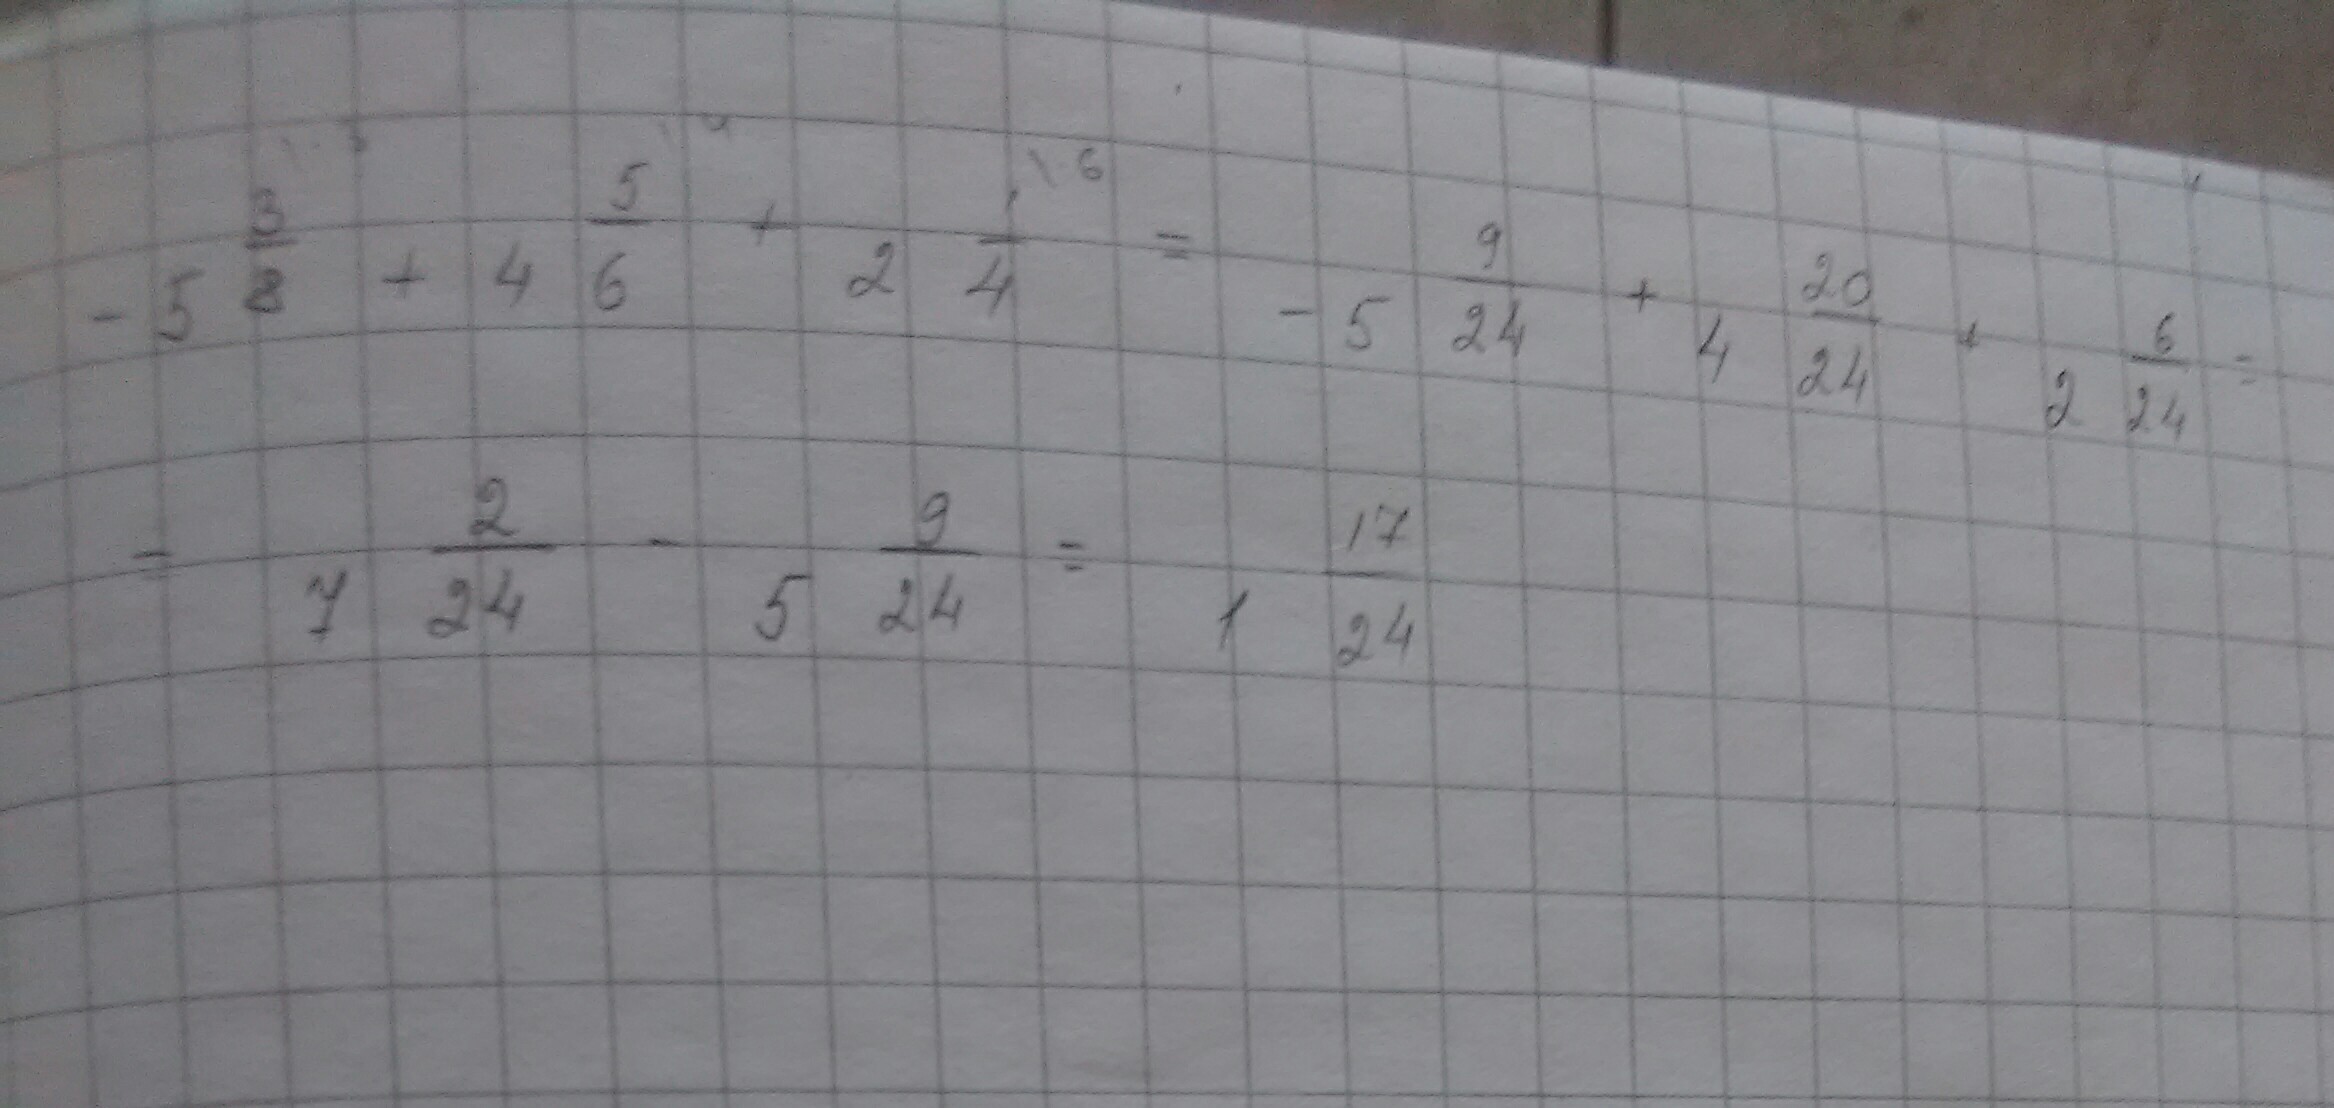 - 5 3/8 \·3 + 4 5/6 \·4 + 2 1/4 \·6 = - 5 9/24 + 4 20/24 + 2 6/24 =
= 7 2/24 - 5 9/24 = 1 17/24